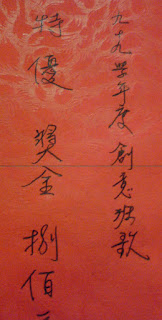 九十九學年度創意班歌
特優 獎金 捌佰